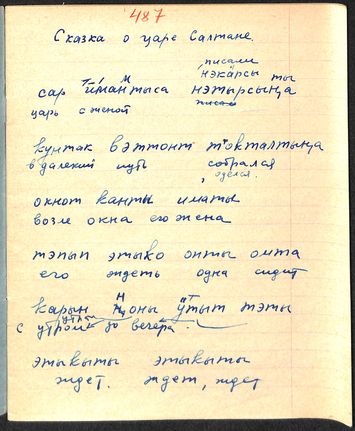 487
Сказка о царе Салтане.
писали
нэкӓрсы ты
сар имантыса нэтырсыӊа
царь с женой
кунтак вэттонт товкталтыӊа
в далекий путь собрался
оделся.
окнот канты иматы
возле окна его жена
тэпып этыко онты омта
его ждеть одна сидит
карын оны ӱтыт тэты
с утром до вечера.
этыкыты этыкыты
ждет. ждет, ждет